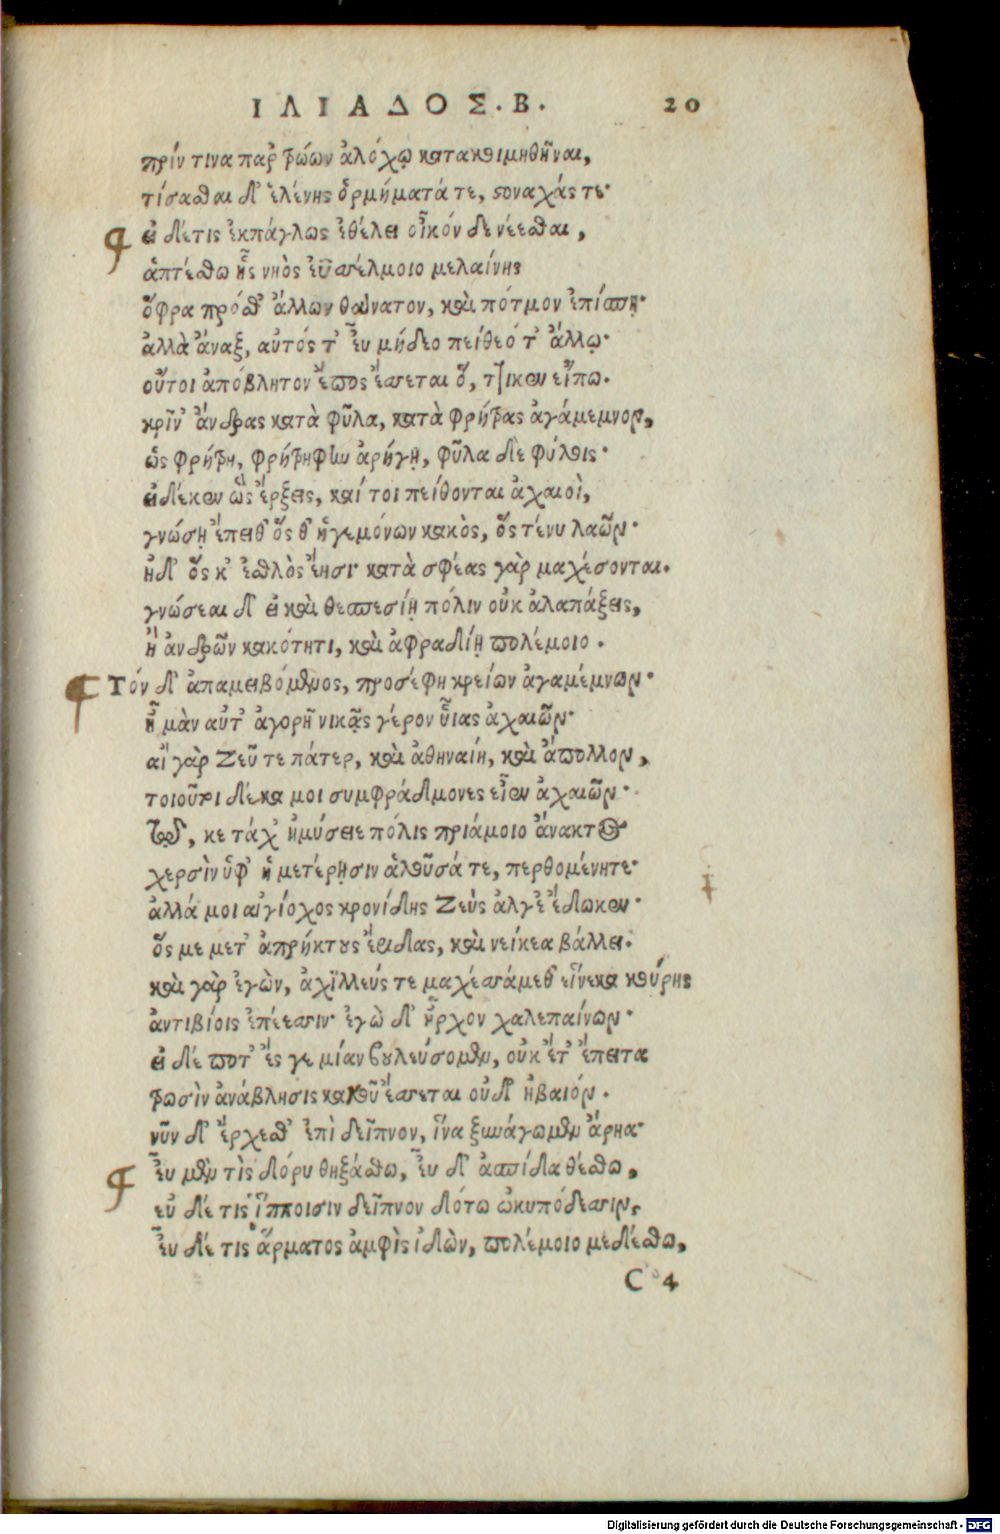 ΙΛΙΑΔΟΣ.Β. 20
πρίν τινα παρ τρώων ἀλόχῳ κατακοιμηθῆναι,
τίσασθαι δ' ἑλένης ὁρμήματά τε, στοναχάς τε·
εἰ δέ τις ἐκπάγλως ἐθέλει οἶκόν δε νέεσθαι,
ἁπτέσθω ἧς νηὸς ἐϋσσέλμοιο μελαίνης
ὄφρα πρόσθ' ἄλλων θάνατον, καὶ πότμον ἐπίσπῃ·
ἀλλὰ ἄναξ, αὐτός τ' εὖ μήδεο πείθεό τ' ἄλλῳ·
οὔτοι ἀπόβλητον ἔπος ἔσσεται ὅ, ττι κεν εἴπω.
κρῖν' ἄνδρας κατὰ φῦλα, κατὰ φρήτρας ἀγάμεμνον,
ὡς φρήτρη, φρήτρηφιν ἀρήγῃ, φῦλα δὲ φύλοις·
εἰ δέ κεν ὣς ἔρξεις, καί τοι πείθονται ἀχαιοὶ,
γνώσῃ ἔπειθ' ὅς θ' ἡγεμόνων κακὸς, ὅς τέ νυ λαῶν·
ἠδ' ὅς κ' ἐσθλὸς ἔησι· κατὰ σφέας γὰρ μαχέσονται.
γνώσεαι δ' εἰ καὶ θεσπεσίῃ πόλιν οὐκ ἀλαπάξεις,
ἢ ἀνδρῶν κακότητι, καὶ ἀφραδίῃ πολέμοιο.
Τόν δ' ἀπαμειβόμενος, προσέφη κρείων ἀγαμέμνων·
ἦ μὰν αὖτ' ἀγορῇ νικᾷς γέρον υἷας ἀχαιῶν·
αἲ γὰρ Ζεῦ τε πάτερ, καὶ ἀθηναίη, καὶ ἄπολλον,
τοιοῦτοι δέκα μοι συμφράδμονες εἶεν ἀχαιῶν·
Τῷ, κε τάχ' ἠμύσειε πόλις πριάμοιο ἄνακτος
χερσὶν ὑφ' ἡμετέρῃσιν ἁλοῦσά τε, περθομένη τε·
ἀλλά μοι αἰγίοχος κρονίδης Ζεὺς ἄλγε' ἔδωκεν·
ὅς με μετ' ἀπρήκτους ἔριδας, καὶ νείκεα βάλλει.
καὶ γὰρ ἐγὼν, ἀχϊλλεύς τε μαχεσσάμεθ' εἵνεκα κούρης
ἀντιβίοις ἐπέεσσιν· ἐγὼ δ' ἦρχον χαλεπαίνων·
εἰ δέ ποτ' ἔς γε μίαν βουλεύσομεν, οὐκ ἔτ' ἔπειτα
τρωσὶν ἀνάβλησις κακοῦ ἔσσεται οὐδ' ἠβαιόν.
νῦν δ' ἔρχεσθ' ἐπὶ δεῖπνον, ἵνα ξυνάγωμεν ἄρηα·
εὖ μέν τὶς δόρυ θηξάσθω, εὖ δ' ἀσπίδα θέσθω,
εὖ δέ τις ἵπποισιν δεῖπνον δότω ὠκυπόδεσσιν,
εὖ δέ τις ἅρματος ἀμφὶς ἰδὼν, πολέμοιο μεδέσθω,
C 4
Digitalisierung gefördert durch die Deutsche Forschungsgemeinschaft - DFG